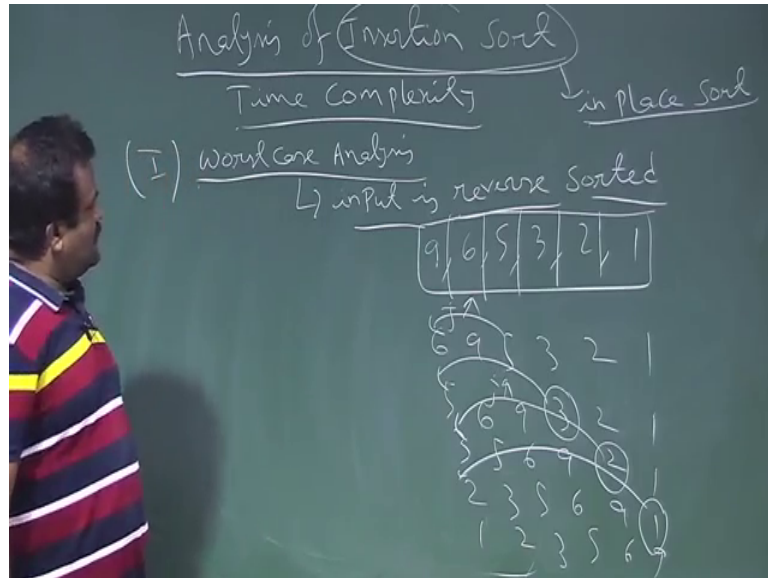 Analysis of Insertion Sort
Time Complexity
in place sort
(I) Worst case Analysis
↳ input is reverse sorted
9 6 5 3 2 1
6 9 5 3 2 1
5 6 9 3 2 1
3 5 6 9 2 1
2 3 5 6 9 1
1 2 3 5 6 9